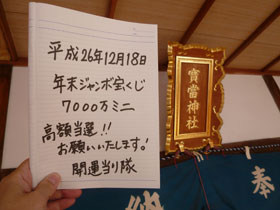 平成26年12月18日
年末ジャンボ宝くじ
7000万ミニ
高額当選!!
お願いいたします!
開運当り隊
寳當神社
奉